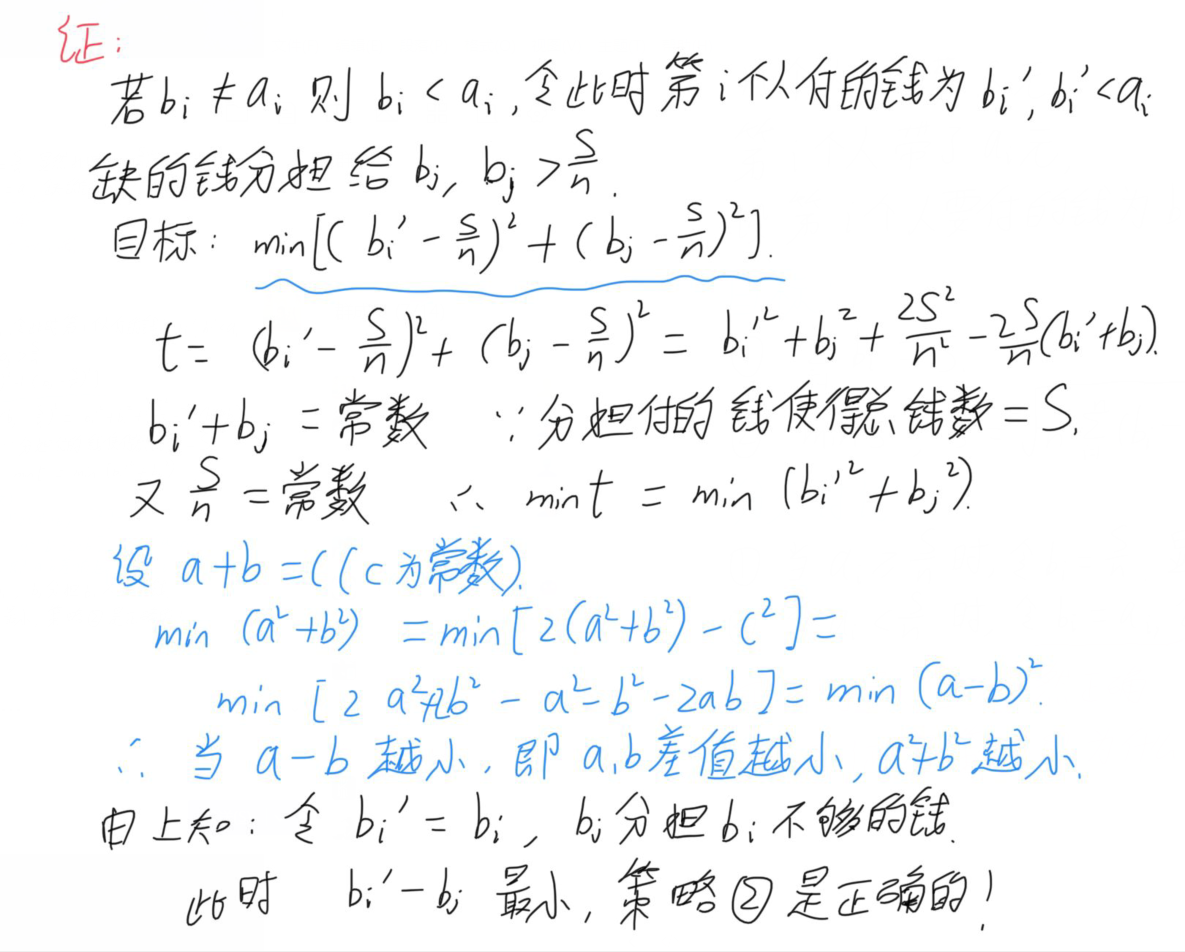 证:
若 bᵢ ≠ aᵢ 则 bᵢ < aᵢ, 令此时第 i 个人付的钱为 bᵢ', bᵢ' < aᵢ
缺的钱分担给 bⱼ, bⱼ > S/n.
目标: min[(bᵢ' - S/n)² + (bⱼ - S/n)²].
t = (bᵢ' - S/n)² + (bⱼ - S/n)² = bᵢ'² + bⱼ² + 2S²/n² - 2S/n(bᵢ' + bⱼ).
bᵢ' + bⱼ = 常数 ∵ 分担付的钱使得总钱数 = S.
又 S/n = 常数 ∴ min t = min (bᵢ'² + bⱼ²).
设 a+b = C (C为常数).
min (a²+b²) = min[2(a²+b²) - C²] =
min [2a²+2b² - a² - b² - 2ab] = min (a-b)².
∴ 当 a-b 越小, 即 a,b 差值越小, a²+b² 越小.
由上知: 令 bᵢ' = bᵢ, bⱼ 分担 bᵢ 不够的钱.
此时 bᵢ' - bⱼ 最小, 策略②是正确的!